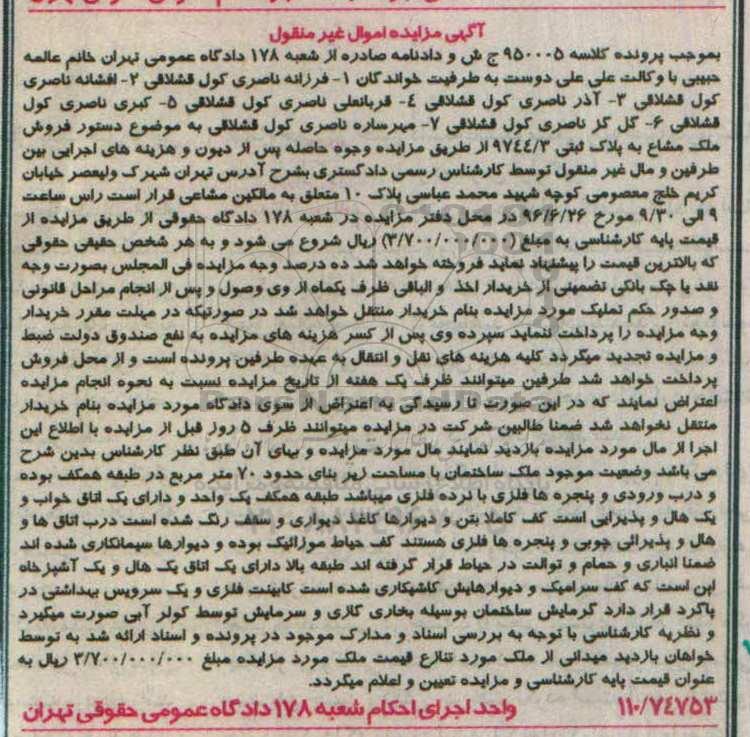 آگهی مزایده اموال غیر منقول
بموجب پرونده کلاسه ۹۵۰۰۰۵ ج ش و دادنامه صادره از شعبه ۱۷۸ دادگاه عمومی تهران خانم عالمه
حبیبی با وکالت علی علی دوست به طرفیت خواندگان ۱- فرزانه ناصری کول قشلاقی ۲- افشانه ناصری
کول قشلاقی ۳- آذر ناصری کول قشلاقی ٤- قربانعلی ناصری کول قشلاقی ۵- کبری ناصری کول
قشلاقی ۶- گل گز ناصری کول قشلاقی ۷- مهرساره ناصری کول قشلاقی به موضوع دستور فروش
ملک مشاع به پلاک ثبتی ۹۷٤٤/۳ از طریق مزایده وجوه حاصله پس از دیون و هزینه های اجرایی بین
طرفین و مال غیر منقول توسط کارشناس رسمی دادگستری بشرح آدرس تهران شهرک ولیعصر خیابان
کریم خلج معصومی کوچه شهید محمد عباسی پلاک ۱۰ متعلق به مالکین مشاعی قرار است راس ساعت
۹ الی ۹/۳۰ مورخ ۹۶/۶/۲۶ در محل دفتر مزایده در شعبه ۱۷۸ دادگاه حقوقی از طریق مزایده از
قیمت پایه کارشناسی به مبلغ (۳/۷۰۰/۰۰۰/۰۰۰) ریال شروع می شود و به هر شخص حقیقی حقوقی
که بالاترین قیمت را پیشنهاد نماید فروخته خواهد شد ده درصد وجه مزایده فی المجلس بصورت وجه
نقد یا چک بانکی تضمینی از خریدار اخذ و الباقی ظرف یکماه از وی وصول و پس از انجام مراحل قانونی
و صدور حکم تملیک مورد مزایده بنام خریدار منتقل خواهد شد در صورتیکه در مهلت مقرر خریدار
وجه مزایده را پرداخت ننماید سپرده وی پس از کسر هزینه های مزایده به نفع صندوق دولت ضبط
و مزایده تجدید میگردد کلیه هزینه های نقل و انتقال به عهده طرفین پرونده است و از محل فروش
پرداخت خواهد شد طرفین میتوانند ظرف یک هفته از تاریخ مزایده نسبت به نحوه انجام مزایده
اعتراض نمایند که در این صورت تا رسیدگی به اعتراض از سوی دادگاه مورد مزایده بنام خریدار
منتقل نخواهد شد ضمنا طالبین شرکت در مزایده میتوانند ظرف ۵ روز قبل از مزایده با اطلاع این
اجرا از مال مورد مزایده بازدید نمایند مال مورد مزایده و بهای آن طبق نظر کارشناس بدین شرح
می باشد وضعیت موجود ملک ساختمان با مساحت زیر بنای حدود ۷۰ متر مربع در طبقه همکف بوده
و درب ورودی و پنجره ها فلزی با نرده فلزی میباشد طبقه همکف یک واحد و دارای یک اتاق خواب و
یک هال و پذیرایی است کف کاملا بتن و دیوارها کاغذ دیواری و سقف رنگ شده است درب اتاق ها و
هال و پذیرائی چوبی و پنجره ها فلزی هستند کف حیاط موزائیک بوده و دیوارها سیمانکاری شده اند
ضمنا انباری و حمام و توالت در حیاط قرار گرفته اند طبقه بالا دارای یک اتاق یک هال و یک آشپزخانه
اپن است که کف سرامیک و دیوارهایش کاشیکاری شده است کابینت فلزی و یک سرویس بهداشتی در
پاگرد قرار دارد گرمایش ساختمان بوسیله بخاری گازی و سرمایش توسط کولر آبی صورت میگیرد
و نظریه کارشناسی با توجه به بررسی اسناد و مدارک موجود در پرونده و اسناد ارائه شد به توسط
خواهان بازدید میدانی از ملک مورد تنازع قیمت ملک مورد مزایده مبلغ ۳/۷۰۰/۰۰۰/۰۰۰ ریال به
عنوان قیمت پایه کارشناسی و مزایده تعیین و اعلام میگردد.
۱۱۰/۷٤۷۵۳ واحد اجرای احکام شعبه ۱۷۸ دادگاه عمومی حقوقی تهران